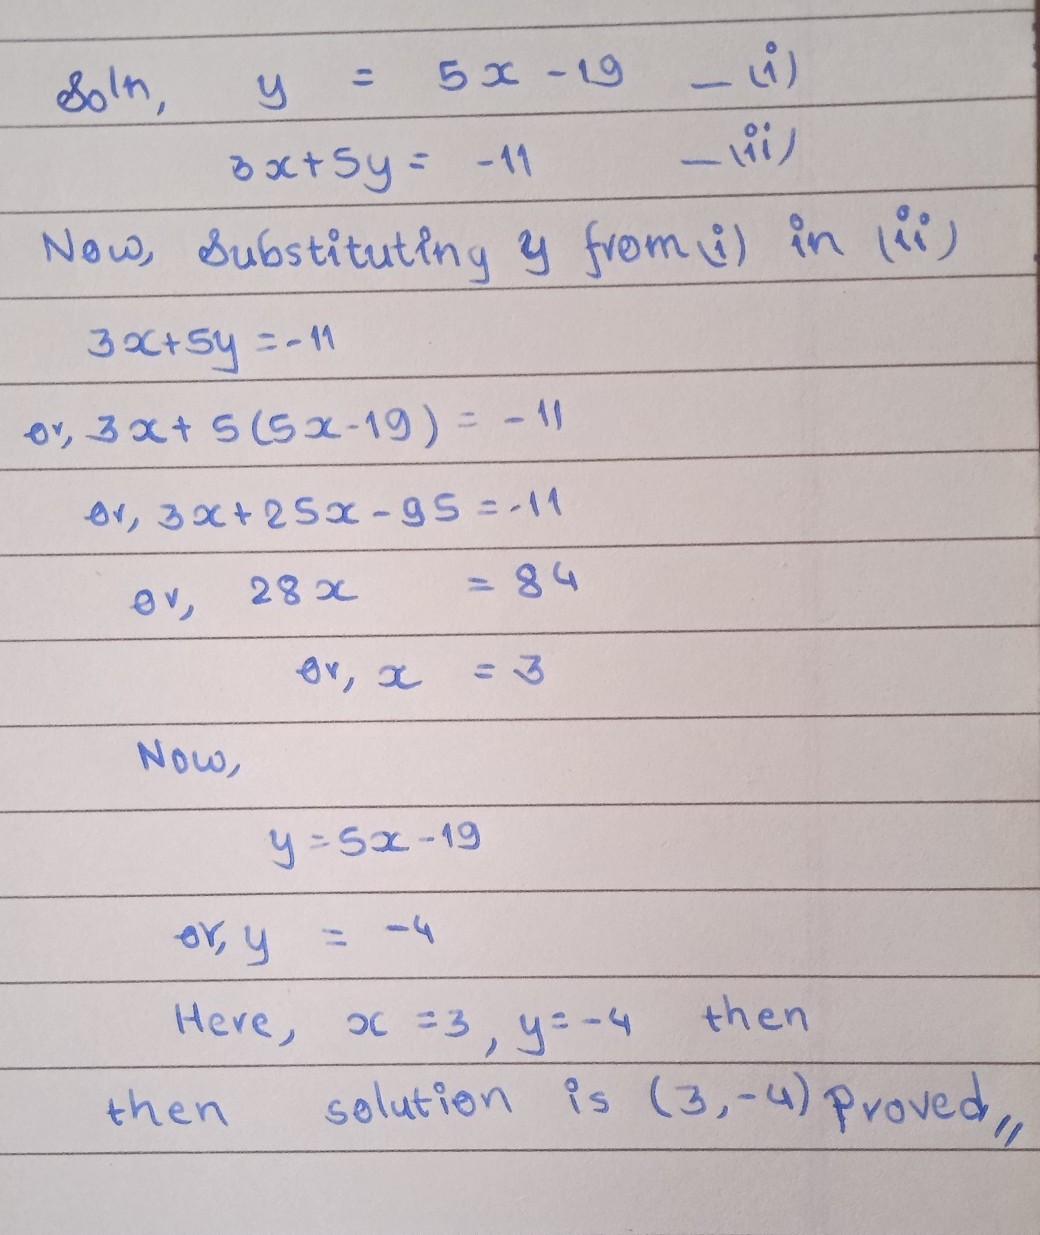 Soln, y = 5x - 19 _ (i)
3x + 5y = -11 _ (ii)
Now, Substituting y from (i) in (ii)
3x + 5y = -11
or, 3x + 5(5x - 19) = -11
or, 3x + 25x - 95 = -11
or, 28x = 84
or, x = 3
Now,
y = 5x - 19
or, y = -4
Here, x = 3, y = -4 then
then solution is (3, -4) Proved,,